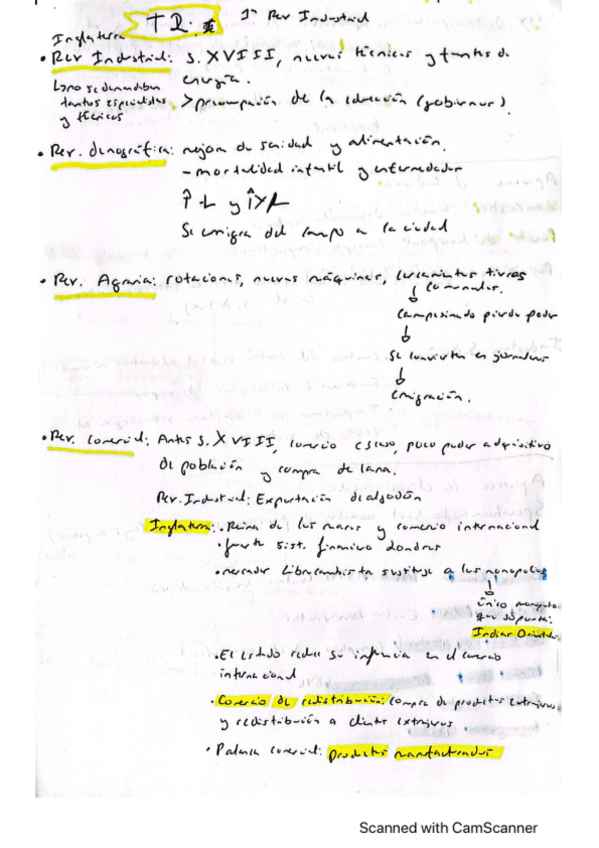 T2. 1ª Rev Industrial
Inglaterra
• Rev Industrial: S. XVIII, nuevas técnicas y fuentes de
energía.
L> no se demandaban
tantos especialistas
y técnicos
> preocupación de la educación (gobiernos).
• Rev. demográfica: mejora de sanidad y alimentación.
- mortalidad infantil y enfermedades
Se emigra del campo a la ciudad
• Rev. Agraria: rotaciones, nuevas máquinas, cercamientos tierras
comunales.
Campesinado pierde poder
Se convierten en jornaleros
Emigración.
• Rev. Comercial: Antes S. XVIII, comercio escaso, poco poder adquisitivo
de población y compra de lana.
Rev. Industrial: Exportación de algodón
Inglaterra: • Reina de los mares y comercio internacional
• fuerte sist. financiero Londres
• mercado librecambista sustituye a los monopolios
único
Indias Orientales
• El estado reduce su influencia en el comercio
internacional
• Comercio de redistribución: compra de productos extranjeros
y redistribución a clientes extranjeros
• Palanca comercial: productos manufacturados
Scanned with CamScanner